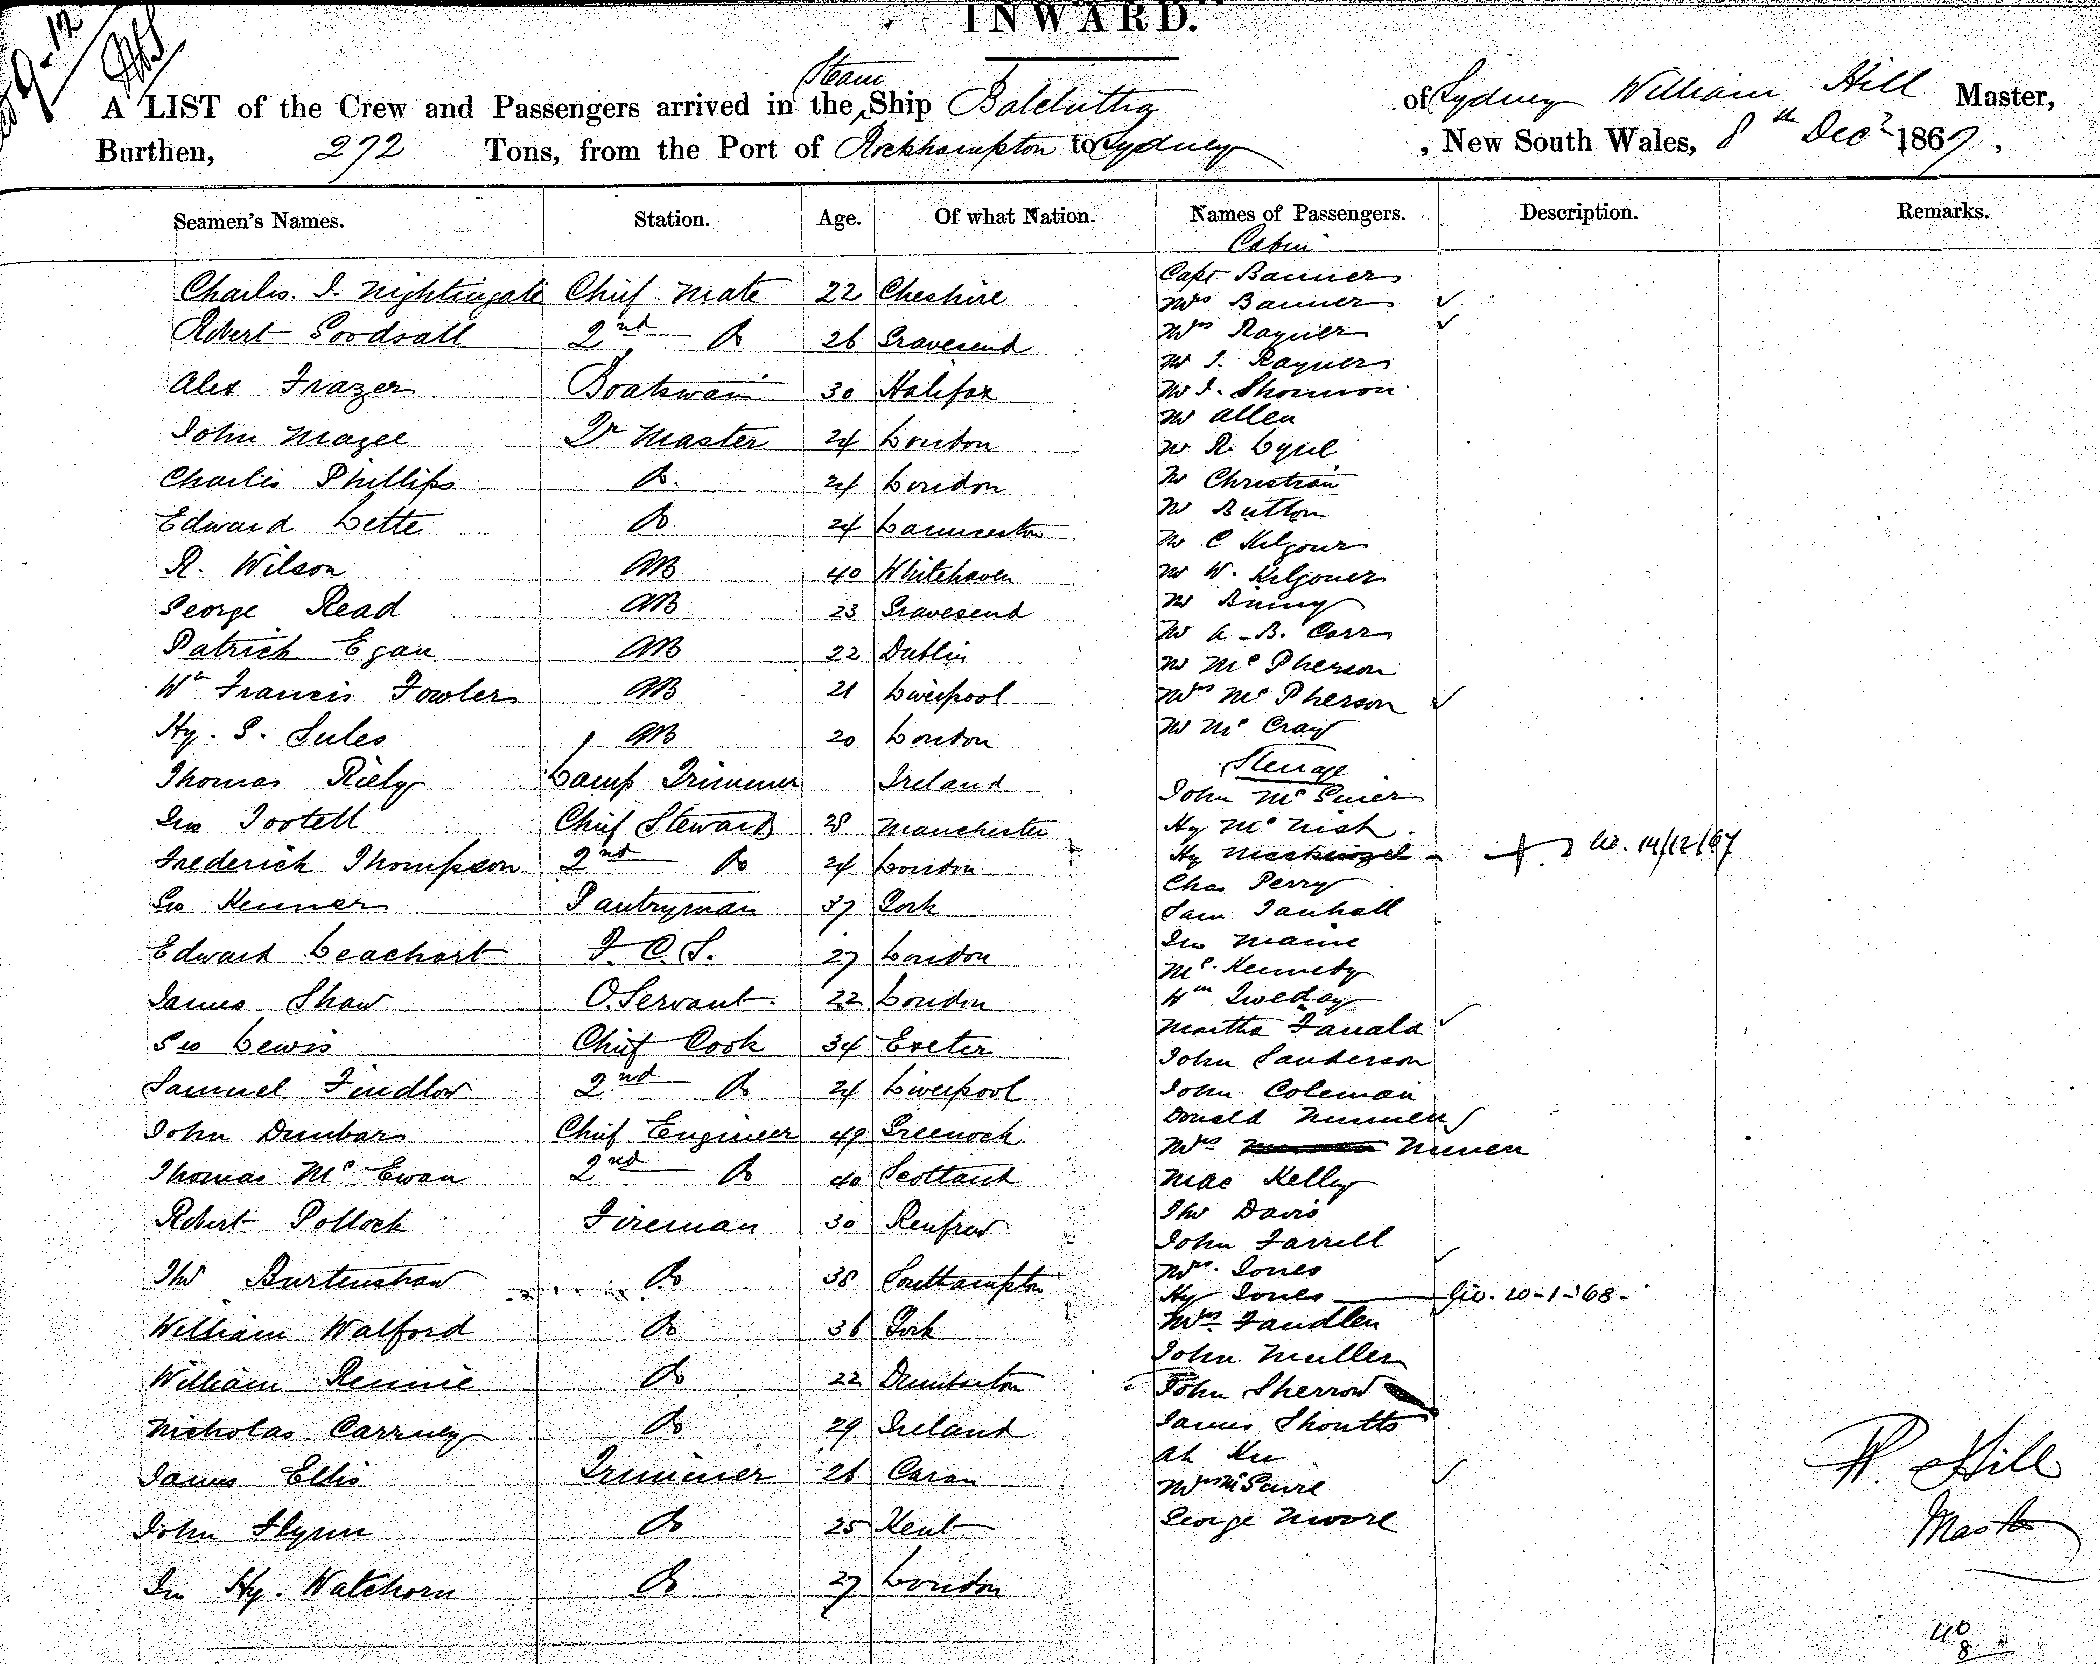 INWARD.
9-12
A LIST of the Crew and Passengers arrived in the Steam Ship Balclutha of Sydney William Hill Master,
Burthen, 272 Tons, from the Port of Rockhampton to Sydney, New South Wales, 8th Decr 1867,
Seamen's Names. Station. Age. Of what Nation. Names of Passengers. Description. Remarks.
Charles I. Nightingale Chief Mate 22 Cheshire
Robert Goodsall 2nd Do 26 Gravesend
Alex Frazer Boatswain 30 Halifax
John Magee Qr Master 24 London
Charles Phillips Do. 24 London
Edward Lette Do 24 Launceston
R. Wilson AB 40 Whitehaven
George Read AB 23 Gravesend
Patrick Egan AB 22 Dublin
Wm Francis Fowler AB 21 Liverpool
Hy. S. Sules AB 20 London
Thomas Riely Lamp Trimmer Ireland
Jno Tortell Chief Steward 28 Manchester
Frederick Thompson 2nd Do 24 London
Geo Kenner Pantryman 37 York
Edward Leachort F.C.S. 27 London
James Shaw O. Servant 22 London
Geo Lewis Chief Cook 34 Exeter
Samuel Findlow 2nd Do 24 Liverpool
John Dunbar Chief Engineer 49 Greenock
Thomas Mc Ewan 2nd Do 40 Scotland
Robert Pollock Fireman 30 Renfrew
Thos Burtenshaw Do 38 Southampton
William Walford Do 36 York
William Rennie Do 22 Dumbarton
Nicholas Carrney Do 29 Ireland
James Ellis Trimmer 26 Cavan
John Flynn Do 25 Kent
Jno Hy. Watchorn Do 27 London
Cabin
Capt Banner
Mrs Banner ✓
Mrs Rayner ✓
Mr J. Rayner
Mr J. Shannon
Mr Allen
Mr R. Lyell
Mr Christian
Mr Button
Mr C Kilgour
Mr W. Kilgouer
Mr Binny
Mr A. B. Carr
Mr Mc Pherson
Mrs Mc Pherson ✓
Mr Mc Craw
Steerage
John Mc Guier
Hy Mc Nish
Hy 14/12/67
Chas Perry
Sam Tanhall
Jno Maine
Mc. Kennedy
Wm Tweday
Martha Fanala ✓
John Sanderson
John Coleman
Donald Nunnen
Mrs Nunen
Mac Kelly
Thos Davis
John Farrell
Mrs. Jones ✓
Hy Jones Gio. 20-1-68-
Mrs. Fandlen
John Muller
John Sherrow
James Shoutts
Ah Kee
Mrs McGuire ✓
George Moore
W. Hill
Master
40
8